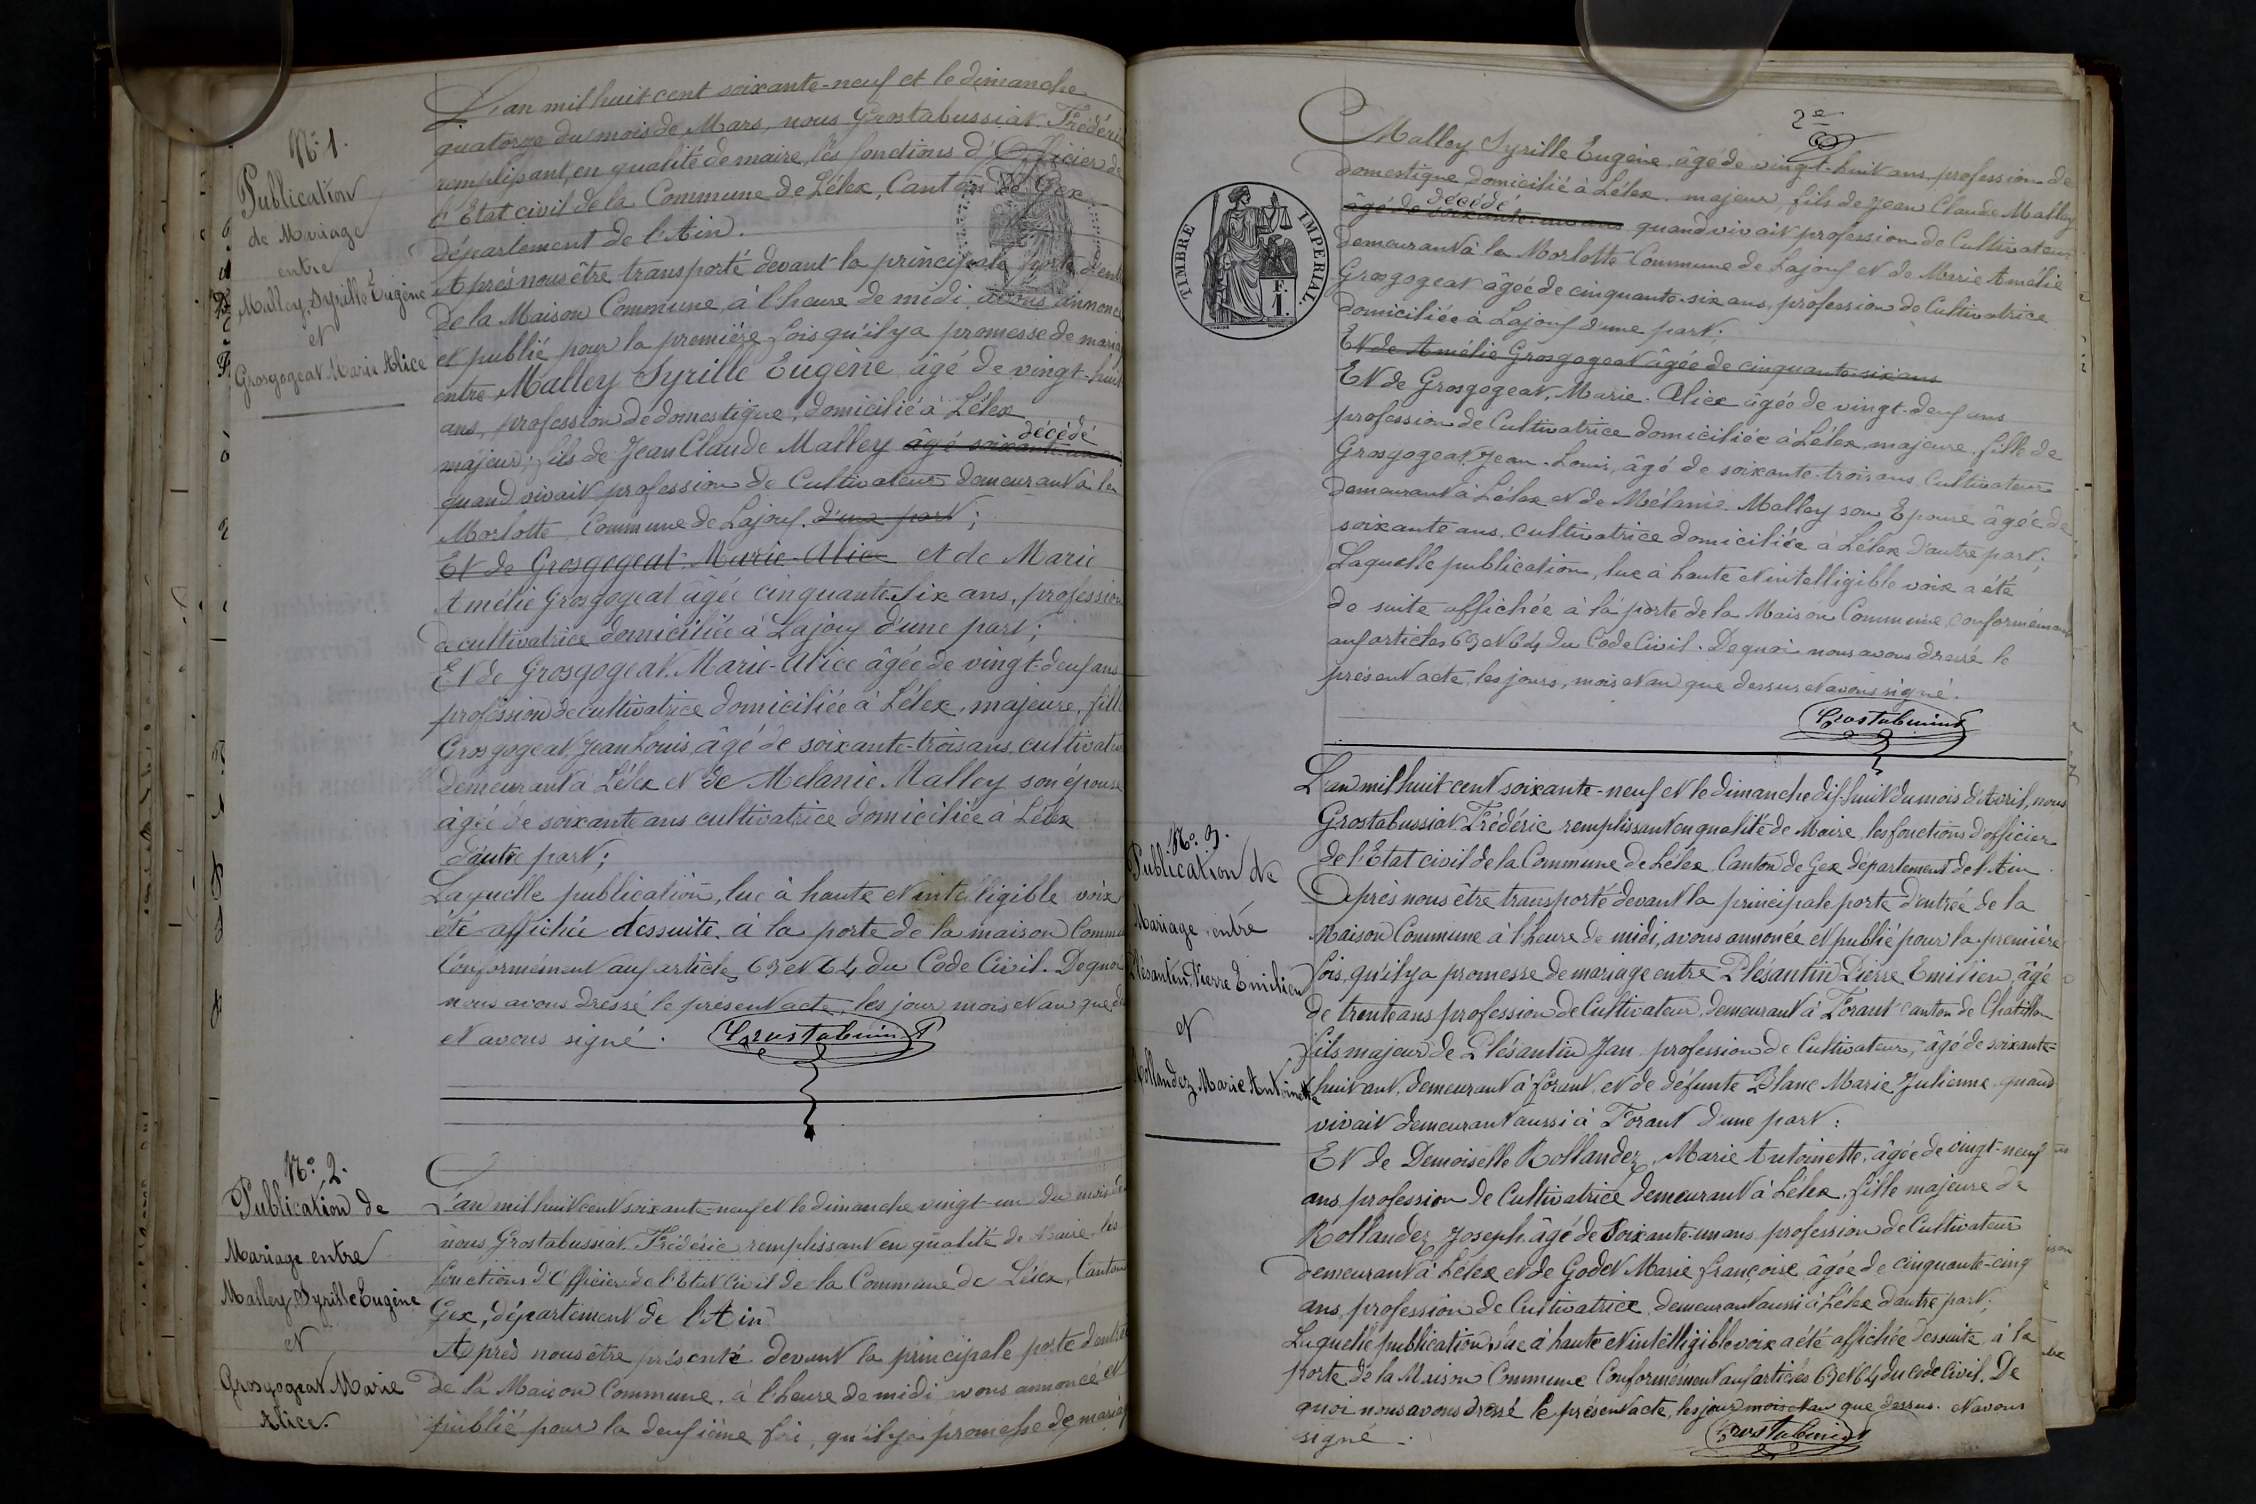 N° 1.
Publication
de Mariage
entre
Malley, Syrille Eugène
et
Grosgogeat Marie Alice
L'an mil huit cent soixante-neuf et le dimanche
quatorze du mois de Mars, nous Grostabussiat Frédéric
remplissant, en qualité de maire, les fonctions d'Officier de
l'Etat civil de la Commune de Lélex, Canton de Gex
département de l'Ain.
Après nous être transporté devant la principale porte d'entr
de la Maison Commune, à l'heure de midi avons annoncé
et publié pour la première fois qu'il y a promesse de maria
entre Malley Syrille Eugène âgé de vingt-huit
ans, profession de domestique, domicilié à Lélex
majeur, fils de Jean Claude Malley âgé soixante un décédé
quand vivait profession de Cultivateur demeurant à la
Morlotte Commune de Lajoux. d'une part;
Et de Grosgogeat Marie Alice et de Marie
Amélie Grosgogeat âgée cinquante six ans, profession
de cultivatrice domiciliée à Lajoux d'une part;
Et de Grosgogeat Marie-Alice âgée de vingt-deux ans
profession de cultivatrice domiciliée à Lélex, majeure, fille
Grosgogeat, Jean Louis, âgé de soixante-trois ans, cultivateu
demeurant à Lélex et de Mélanie Malley son épouse
âgée de soixante ans cultivatrice domiciliée à Lélex
d'autre part;
Laquelle publication, lue à haute et intelligible voix
été affichée dessuite à la porte de la maison Commu
Conformément aux articles 63 et 64 du Code Civil. De quoi
nous avons dressé le présent acte, les jour mois et an que de
et avons signé. Grostabussiat
N° 2.
Publication de
Mariage entre
Malley, Syrille Eugène
et
Grosgogeat Marie
Alice.
L'an mil huit cent soixante-neuf et le dimanche vingt-un du mois de
nous Grostabussiat Frédéric remplissant en qualité de Maire les
fonctions d'Officier de l'Etat Civil de la Commune de Lélex, Canton
Gex, département de l'Ain
Après nous être présenté devant la principale porte d'entré
de la Maison Commune, à l'heure de midi avons annoncé et
publié pour la deuxième foi, qu'il y a promesse de maria
2e
TIMBRE IMPERIAL.
F.
1.
Malley Syrille Eugène, âgé de vingt-huit ans, profession de
domestique, domicilié à Lélex, majeur, fils de Jean Claude Malley
âgé de soixante-un ans décédé quand vivait profession de Cultivateur
demeurant à la Morlotte Commune de Lajoux et de Marie Amélie
Grosgogeat âgée de cinquante-six ans, profession de Cultivatrice
domiciliée à Lajoux d'une part;
Et de Amélie Grosgogeat âgée de cinquante-six ans
Et de Grosgogeat, Marie-Alice âgée de vingt-deux ans
profession de Cultivatrice domiciliée à Lélex, majeure, fille de
Grosgogeat, Jean-Louis, âgé de soixante-trois ans, Cultivateur
demeurant à Lélex et de Mélanie Malley son Epouse âgée de
soixante ans, cultivatrice domiciliée à Lélex d'autre part;
Laquelle publication, lue à haute et intelligible voix a été
de suite affichée à la porte de la Maison Commune, conformément
aux articles 63 et 64 du Code Civil. De quoi nous avons dressé le
présent acte, les jours, mois et an que dessus et avons signé.
Grostabussiat
N° 3.
Publication de
Mariage entre
Plésantin, Pierre Emilien
et
Rollandez Marie Antoinette
L'an mil huit cent soixante-neuf et le dimanche dix-huit du mois d'Avril, nous
Grostabussiat Frédéric remplissant en qualité de Maire, les fonctions d'officier
de l'Etat civil de la Commune de Lélex, Canton de Gex département de l'Ain.
Après nous être transporté devant la principale porte d'entrée de la
Maison Commune à l'heure de midi, avons annoncé et publié pour la première
fois, qu'il y a promesse de mariage entre Plésantin Pierre Emilien, âgé
de trente ans profession de Cultivateur, demeurant à Forant canton de Chatillon
fils majeur de Plésantin Jan profession de Cultivateur, âgé de soixante-
huit ant, demeurant à forant et de défunte Blanc Marie Julienne quand
vivait demeurant aussi à Forant d'une part:
Et de Demoiselle Rollandez, Marie Antoinette, âgée de vingt-neuf
ans, profession de Cultivatrice demeurant à Lélex, fille majeure de
Rollandez Joseph âgé de Soixante-un ans profession de Cultivateur
demeurant à Lélex et de Godet Marie françoise âgée de cinquante-cinq
ans, profession de Cultivatrice demeurant aussi à Lélex d'autre part;
Laquelle publication, lue à haute et intelligible voix a été affichée dessuite à la
porte de la Maison Commune Conformément aux articles 63 et 64 du Code Civil. De
quoi nous avons dressé le présent acte, les jour mois et an que dessus. et avons
signé. Grostabussiat